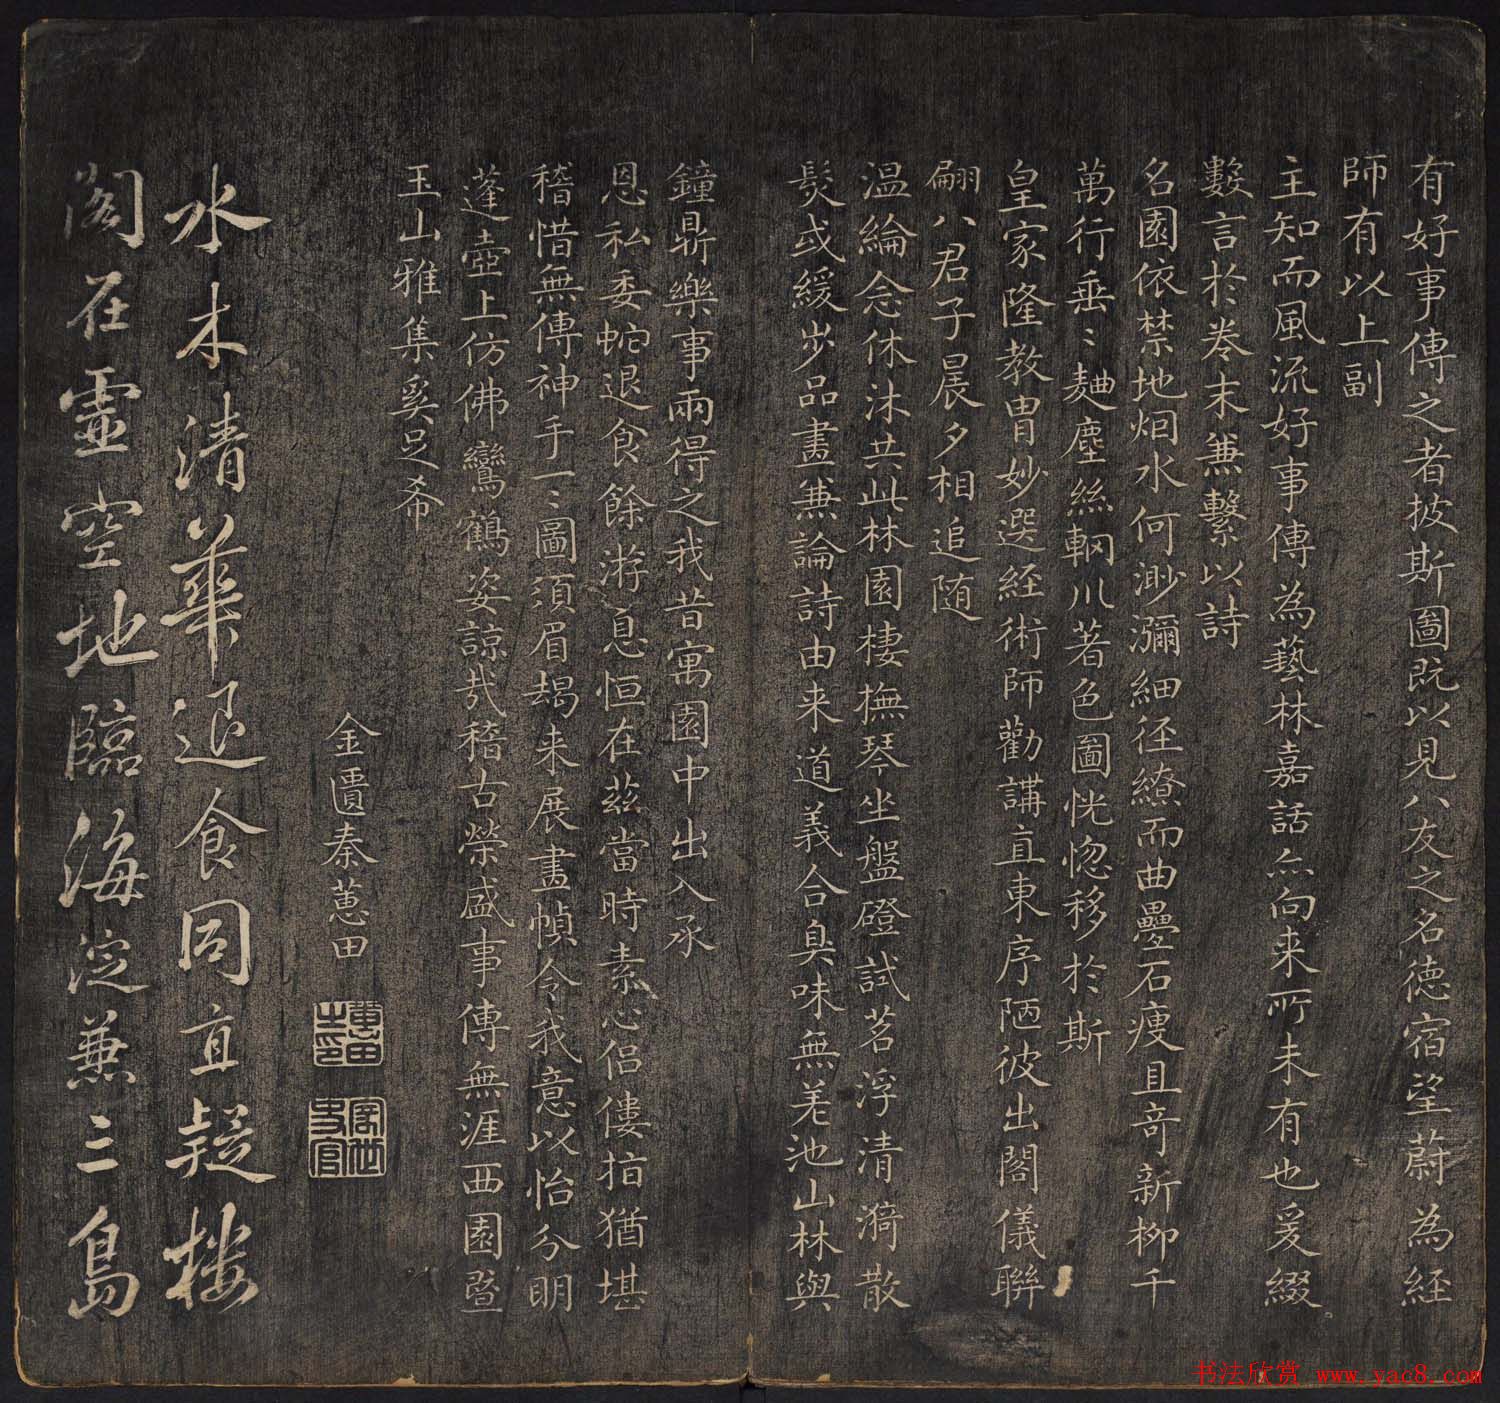 有好事傳之者披斯圖既以見八友之名德宿望蔚為經
師有以上副
主知而風流好事傳為藝林嘉話亦向来所未有也爰綴
數言於卷末兼繫以詩
名園依禁地烟水何渺瀰細徑繚而曲疊石瘦且奇新柳千
萬行垂〻麯塵絲輞川著色圖恍惚移於斯
皇家隆教胄妙選經術師勸講直東序陋彼出閣儀聯
翩八君子晨夕相追随
溫綸念休沐共此林園棲撫琴坐盤磴試茗浮清漪散
髮或緩步品畫兼論詩由来道義合臭味無羌池山林與
鐘鼎樂事兩得之我昔寓園中出入承
恩私委蛇退食餘游息恒在茲當時素心侣僂指猶堪
稽惜無傳神手一〻圖須眉朅来展畫幀令我意以怡分明
蓬壺上仿佛鸞鶴姿諒哉稽古榮盛事傳無涯西園暨
玉山雅集奚足希
金匱秦蕙田
蕙田之印
水木清華退食同直疑楼
阁在靈空地臨海淀兼三島
书法欣赏 www.yac8.com